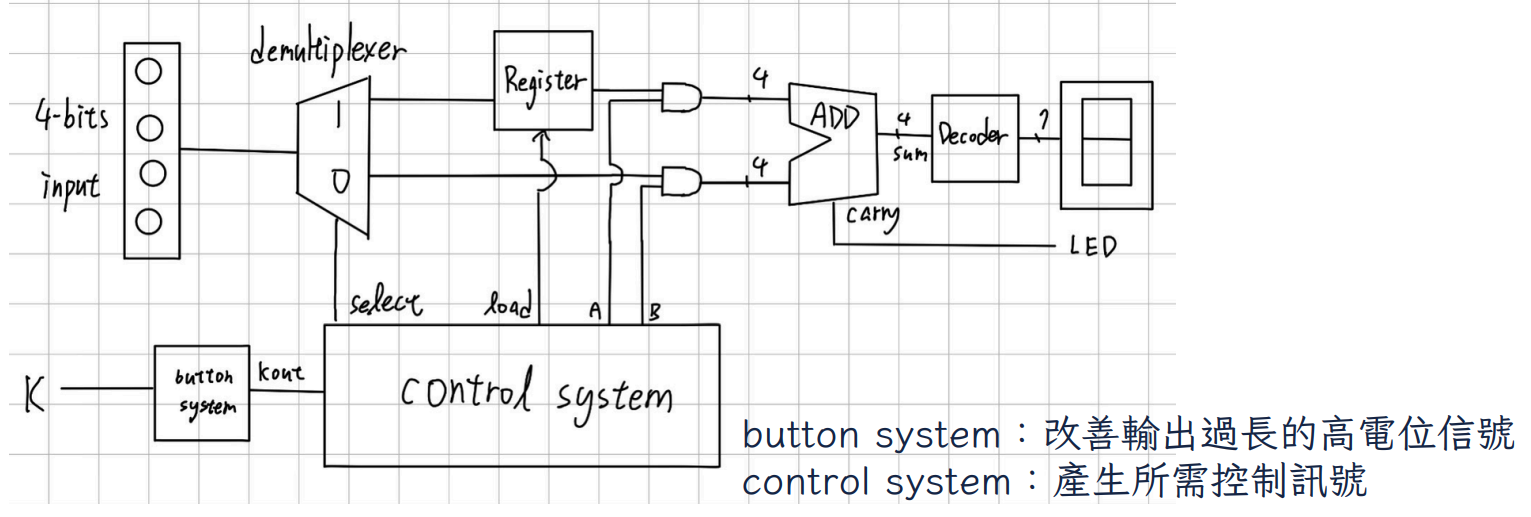 demultiplexer
4-bits
input
1
0
Register
4
4
ADD
4
sum
Decoder
7
carry
LED
select
load
A
B
K
button
system
Kout
control system
button system：改善輸出過長的高電位信號
control system：產生所需控制訊號